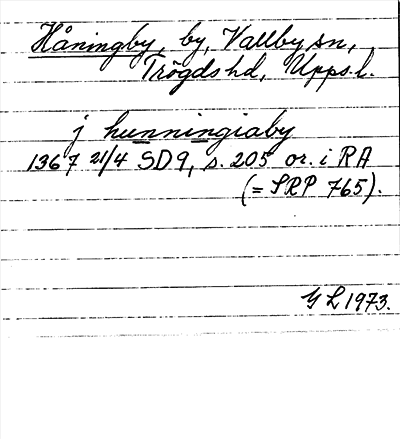 Håningby, by, Vallby sn,
Trögds hd, Upps. l.
j hunningiaby
1367 21/4 SD 9, s. 205 or. i RA
(= SRP 765).
G L 1973.